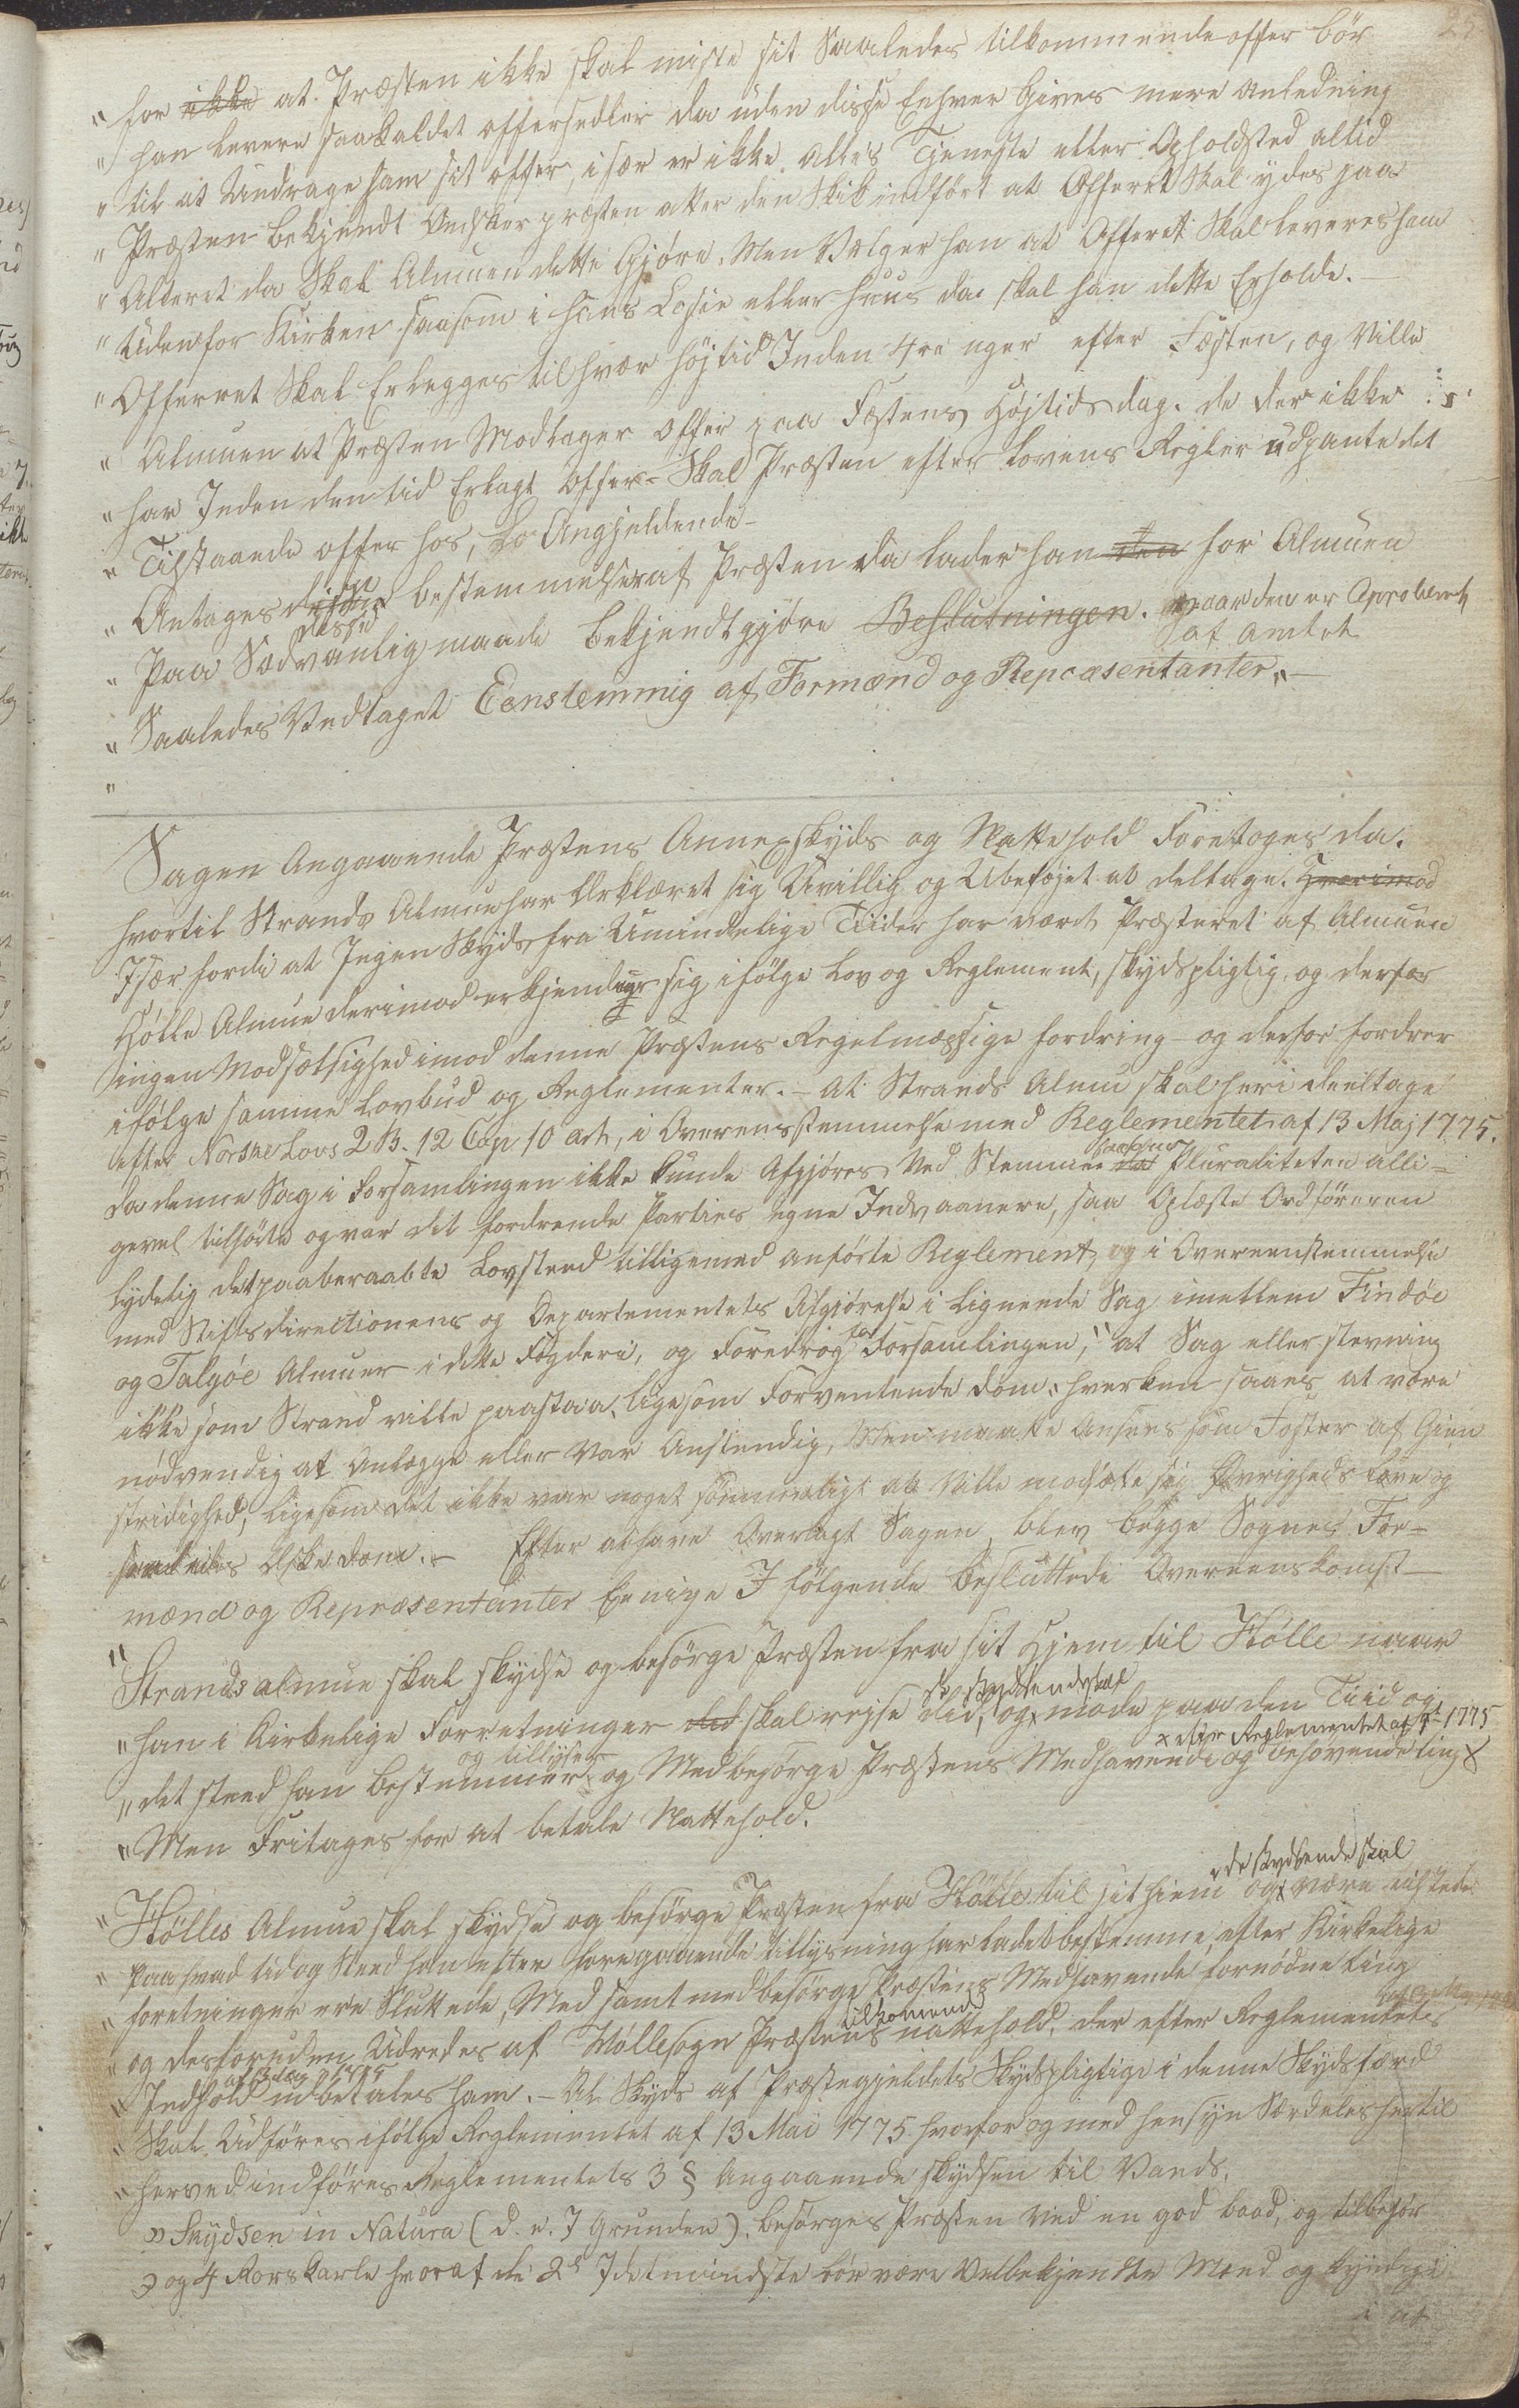 25
" for ikke at Præsten ikke skal miste sit Saaledes tilkommende offer bör
" han levere saakaldet offersedler da uden disse Enhver Gives mere Anledning
" til at Undrage ham sit offer, især er ikke alles Tjeneste eller Opholdsted altid
" Præsten bekjendt Ønsker præsten atter den Skik indfört at Offeret skal ydes paa
" Alteret da Skal Almuen dette Gjöre. Men Vælger han at Offeret skal leveres ham
" Udenfor Kirken saasom i hans Losie eller huus da skal han dette Erholde.
" Offerret Skal Erlegges til hver höjtid Inden 4re uger efter Festen, og Ville
" Almuen at Præsten Modtager offer paa Festens Höjtids dag. de der ikke
" har Inden den tid Erlagt Offer- Skal Præsten efter Lovens Regler udpante det
" Tilstaaende offer hos, de Angjeldende-
" Antages disse bestemmelser af Præsten da lader han den for Almuen
" Paa Sædvanlig maade bekjendtgjöre Beslutningen. naar den er Aproberet
af Amtet
" Saaledes Vedtaget Eenstemmig af Formænd og Repræsentanter."
"
Sagen Angaaende Præstens Annexskyds og Nattehold Foretoges da.
hvortil Strands Almue har Erklæret sig Uvillig og Ubeföjet at deltage. Hvorimod
Især fordi at Ingen Skyds fra Umindelige Tiider har været Præsteret af Almuen
Hölle Almue derimod erkjender sig ifölge Lov og Reglement, skydspligtig, og derfor
ingen Modsætlighed imod denne Præstens Regelmæssige fordring - og derfor fordrer
ifölge samme Lovbud og Reglementer. - At Strands Almue skal heri deeltage
efter Norske Lovs 2 B. 12 Cap 10 art, i Overensstemmelse med Reglementet af 13 Maj 1775.
da denne Sag i Forsamlingen ikke kunde Afgjöres Ved Stemmer Pluraliteten alli-
gevel tilhörte og var det fordrende Parties egne Indvaanere, saa Oplæste Ordföreren
lydelig det paaberaabte Lovsteed tilligemed anförte Reglement, og i Overeenstemmelse
med Stiftsdirectionens og Departementets Afgjörelse i Lignende Sag imellem Findöe
og Talgöe Almuer i dette Fogderi, og Foredrog for Forsamlingen, "at Sag eller stevning
ikke som Strand ville paastaa, ligesom Forventende dom, hverken saaes at være
nödvendig at Anlægge eller Var Anstendig, Men maatte Ansees som Foster af Gien
stridighed, ligesom det ikke var noget sömmeligt at Ville modsætte sig Övrigheds Love og
dom. - Efter at have Overlagt Sagen, blev begge Sognes For-
mænd og Repræsentanter Eenige I fölgende besluttede Overeenskomst-
" Strands almue skal skydse og besörge Præsten fra sit Hjem til Hölle naar
de skydsendeskal
" han i Kirkelige Forretninger skal rejse did, og möde paa den Tiid og
og tillyser
x efter Reglementet af 1775
" det steed han bestemmer og Medbesörge Præstens Medhavende og behövende ting x
" Men Fritages for at betale Nattehold.
de skydsende skal
" Hölles Almue skal skydse og besörge Præsten fra Hölle til sit hiem og være tilstede
" paa hvad tid og Steed han efter foregaaende tillysning har ladet bestemme, efter Kirkelige
" foretninger ere Sluttede, Med samt medbesörge Præstens Medhavende fornödne ting
tilkomende
" og desforuden Udredes af Höllesogn Præstens nattehold, der efter Reglementets
" Indhold indbetales ham. - At Skyds af Præstegjeldets Skydspligtige i denne Skydsfærd
" Skal Udföres ifölge Reglementet af 13 Mai 1775 hvorfor og med hensyn Særdeles hertil
" herved indföres Reglementets 3 § Angaaende skydsen til Vands.
" Skydsen in Natura (d. e. I Grunden), besörges Præsten med en god baad, og tilbehör
" og 4 Rorskarle hvoraf de 2de Idetmindste bör være Velbekjendte Mænd og kyndige
i at